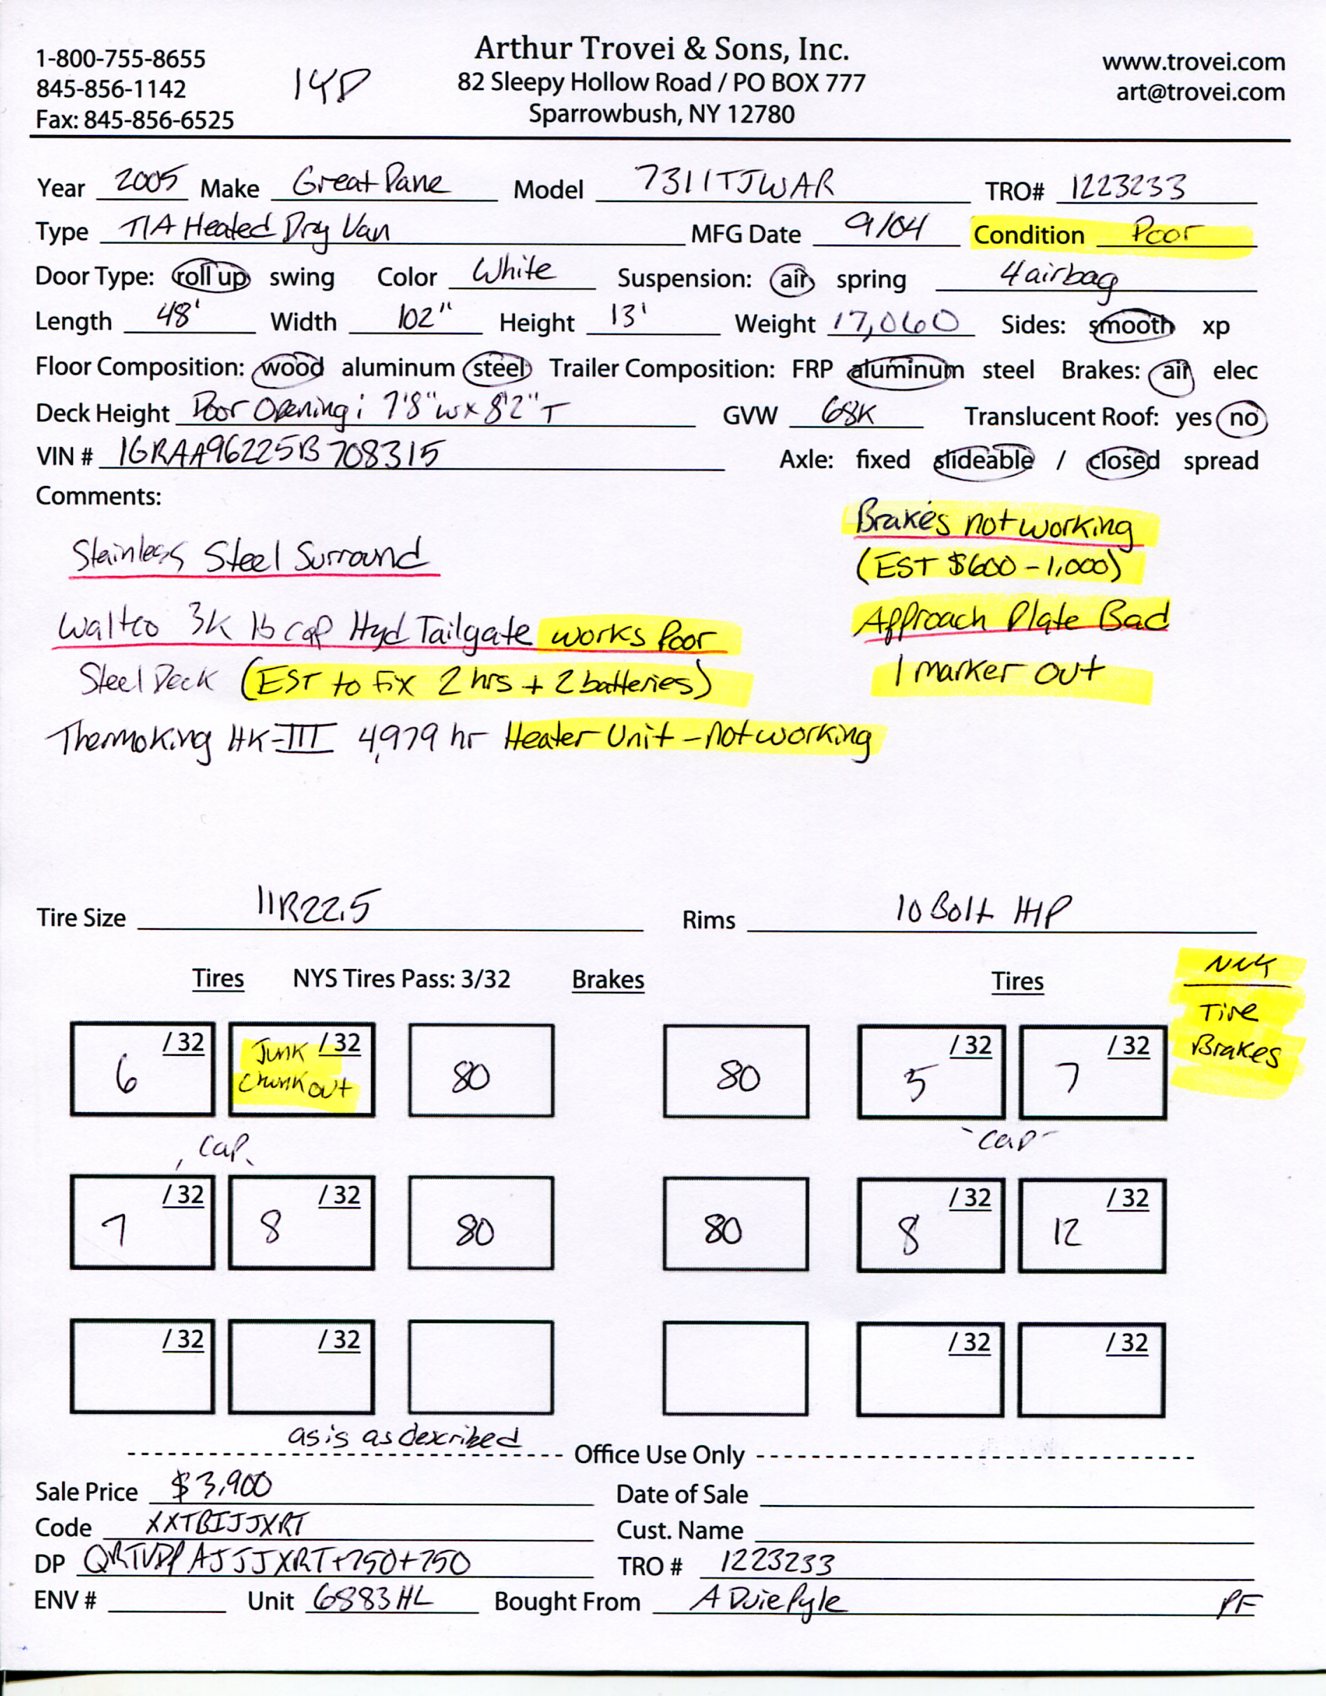 Arthur Trovei & Sons, Inc.
1-800-755-8655
82 Sleepy Hollow Road / PO BOX 777
www.trovei.com
845-856-1142
art@trovei.com
Fax: 845-856-6525
Sparrowbush, NY 12780
Year 2005 Make Great Dane Model 7311TJWAR TRO# 1223233
Type TIA Heated Dry Van MFG Date 9/04 Condition Poor
Door Type: roll up swing Color White Suspension: air spring 4 airbag
Length 48' Width 102" Height 13' Weight 17,060 Sides: smooth xp
Floor Composition: wood aluminum steel Trailer Composition: FRP aluminum steel Brakes: air elec
Deck Height Door Opening: 7'8"w x 8'2"T GVW 68K Translucent Roof: yes no
VIN # 1GRAA96225B708315 Axle: fixed slideable / closed spread
Comments:
Brakes not working
Stainless Steel Surround
(EST $600-1,000)
Waltco 3K lb cap Hyd Tailgate works Poor
Approach Plate Bad
Steel Deck (EST to Fix 2 hrs + 2 batteries)
1 marker out
Thermoking HK-III 4,979 hr Heater Unit - not working
Tire Size 11R22.5 Rims 10 Bolt HP
Tires NYS Tires Pass: 3/32 Brakes Tires
Tire
Brakes
6 /32 Junk Chunk out /32 80 80 5 /32 7 /32
cap cap
7 /32 8 /32 80 80 8 /32 12 /32
/32 /32 /32 /32
as is as described
Office Use Only
Sale Price $3,900 Date of Sale
Code XXTBIJJXRT Cust. Name
DP TRO # 1223233
ENV # Unit 6883HL Bought From A Duie Pyle PF